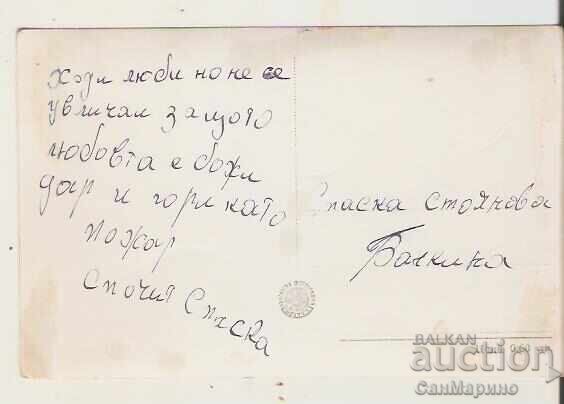 Ходи люби но не се
увличай защото
любовта е божи
дар и гори като
пожар
Спаска
Спаска Стоянова
BALKAN
auction
СанМарино